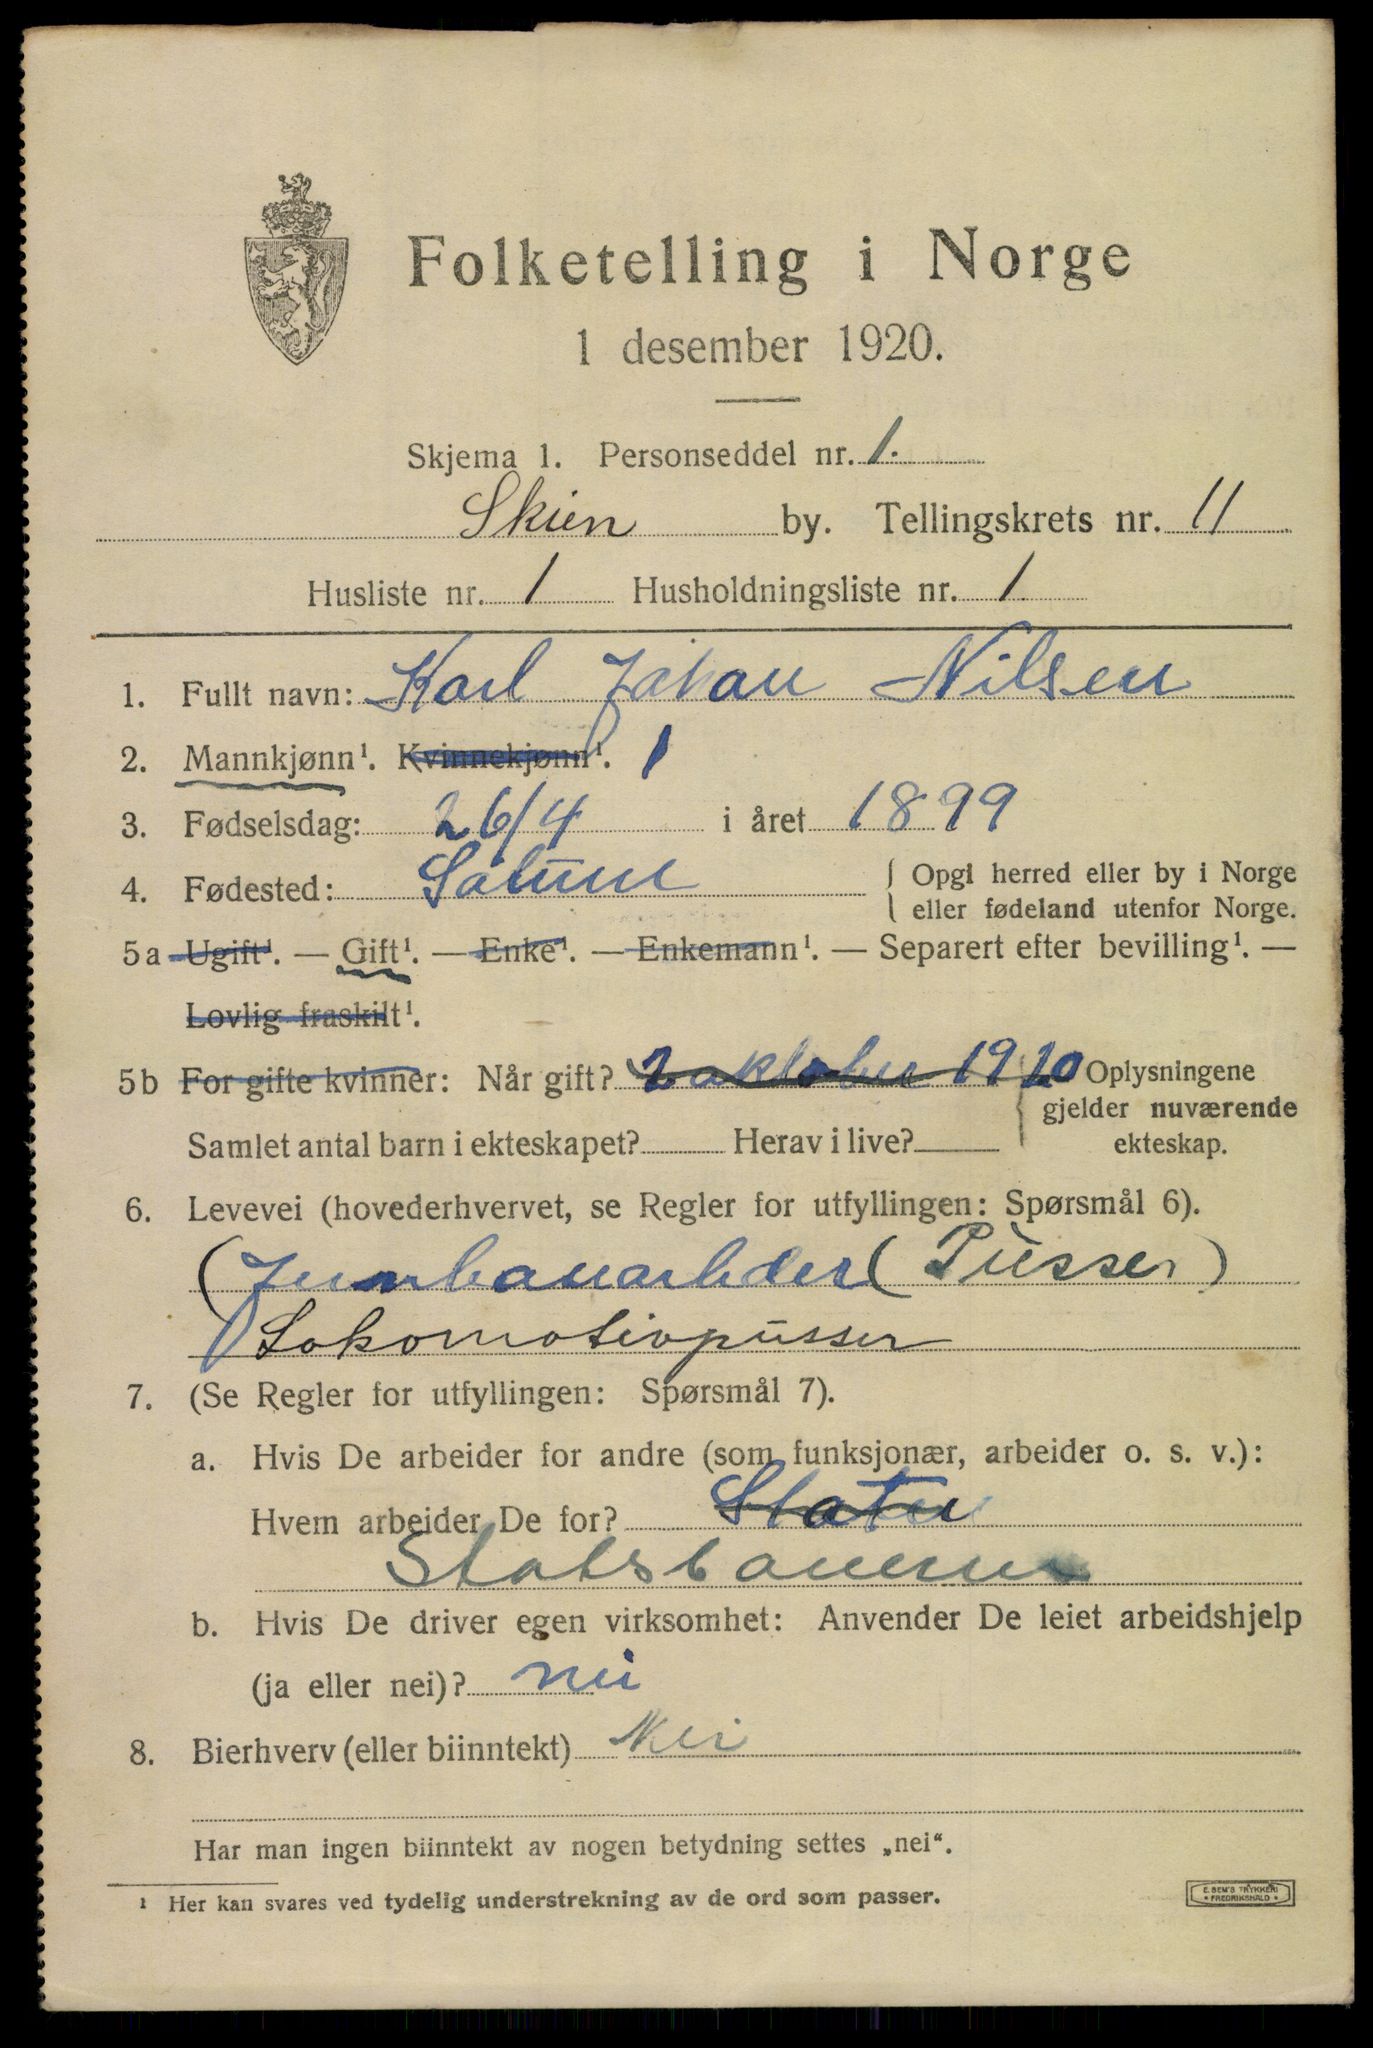 Folketelling i Norge
1 desember 1920.
Skjema 1. Personseddel nr. 1.
Skien by. Tellingskrets nr. 11
Husliste nr. 1 Husholdningsliste nr. 1
1. Fullt navn: Karl Johan Nilsen
2. Mannkjønn¹. Kvinnekjønn¹. 1
3. Fødselsdag: 26/4 i året 1899
4. Fødested: Solum { Opgi herred eller by i Norge
eller fødeland utenfor Norge.
5a Ugift¹. — Gift¹. — Enke¹. — Enkemann¹. — Separert efter bevilling¹. —
Lovlig fraskilt¹.
5b For gifte kvinner: Når gift? 2 oktober 1920 Oplysningene
gjelder nuværende
Samlet antal barn i ekteskapet? Herav i live? ekteskap.
6. Levevei (hovederhvervet, se Regler for utfyllingen: Spørsmål 6).
(Jernbanearbeder (Pusser)
Lokomotivpusser
7. (Se Regler for utfyllingen: Spørsmål 7).
a. Hvis De arbeider for andre (som funksjonær, arbeider o. s. v.):
Hvem arbeider De for? Staten
Statsbanerne
b. Hvis De driver egen virksomhet: Anvender De leiet arbeidshjelp
(ja eller nei)? nei
8. Bierhverv (eller biinntekt) Nei
Har man ingen biinntekt av nogen betydning settes „nei“.
¹ Her kan svares ved tydelig understrekning av de ord som passer.
E. SEM'S TRYKKERI
FREDRIKSHALD